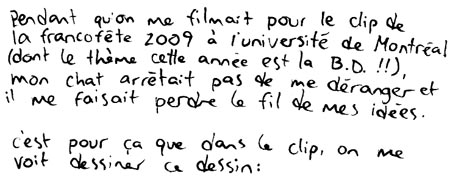 Pendant qu'on me filmait pour le clip de
la francofête 2009 à l'université de Montréal
(dont le thème cette année est la B.D. !!),
mon chat arrêtait pas de me déranger et
il me faisait perdre le fil de mes idées.
c'est pour ça que dans le clip, on me
voit dessiner ce dessin: